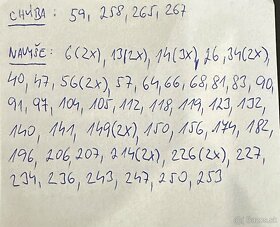 CHÝBA : 59, 258, 265, 267
NAVYŠE : 6(2x), 13(2x), 14(3x), 26, 34(2x),
40, 47, 56(2x), 57, 64, 66, 68, 81, 83, 90,
91, 97, 104, 105, 112, 118, 119, 123, 132,
140, 141, 149(2x), 150, 156, 174, 182,
196, 206, 207, 214(2x), 226(2x), 227,
234, 236, 243, 247, 250, 253
bazos.sk